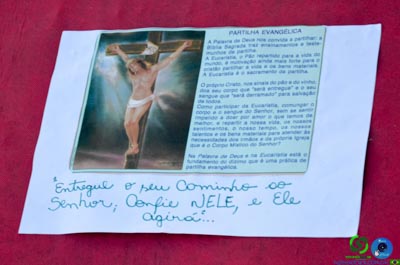 PARTILHA EVANGÉLICA
A Palavra de Deus nos convida a partilhar: a
Bíblia Sagrada traz ensinamentos e teste-
munhos de partilha.
A Eucaristia, o Pão repartido para a vida do
mundo, é motivação ainda mais forte para o
cristão partilhar a vida e os bens materiais.
A Eucaristia é o sacramento da partilha.
O próprio Cristo, nos sinais do pão e do vinho,
dos seu corpo que "será entregue" e o seu
sangue que "será derramado" para salvação
de todos.
Como participar da Eucaristia, comungar o
corpo e o sangue do Senhor, sem se sentir
impelido a doar por amor o que temos de
melhor, e repartir a nossa vida, os nossos
sentimentos, o nosso tempo, os nossos
talentos e os bens materiais para atender às
necessidades dos irmãos e da própria Igreja
que é o Corpo Místico do Senhor?
Na Palavra de Deus e na Eucaristia está o
fundamento do dízimo que é uma prática de
partilha evangélica.
"Entregue o seu Caminho ao
Senhor; Confie NELE, e Ele
agirá"...